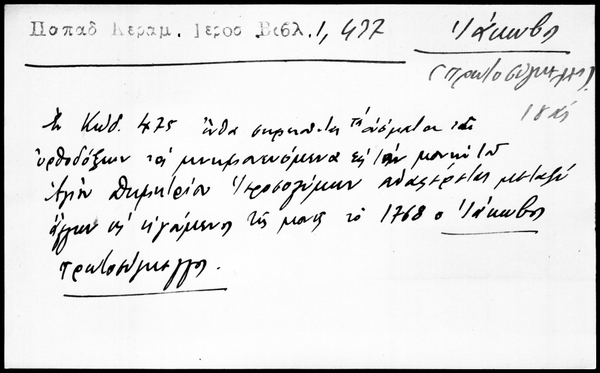 Παπαδ Κεραμ. Ιεροσ Βιβλ. 1, 437
Ἰάκωβος
(πρωτοσύγκελλος)
18 αἰ
Ἐν Κώδ. 475 ἔνθα σημειοῦται τὰ ὀνόματα τῶν
ὀρθοδόξων τὰ μνημονευόμενα εἰς τὴν μονὴν τοῦ
Ἁγίου Δημητρίου Ἱεροσολύμων ἀναφέρεται μεταξὺ
ἄλλων ὡς ἡγούμενος τῆς μονῆς τὸ 1768 ὁ Ἰάκωβος
πρωτοσύγκελλος.